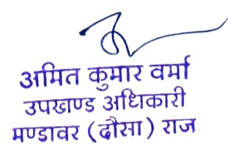 अमित कुमार वर्मा
उपखण्ड अधिकारी
मण्डावर (दौसा) राज